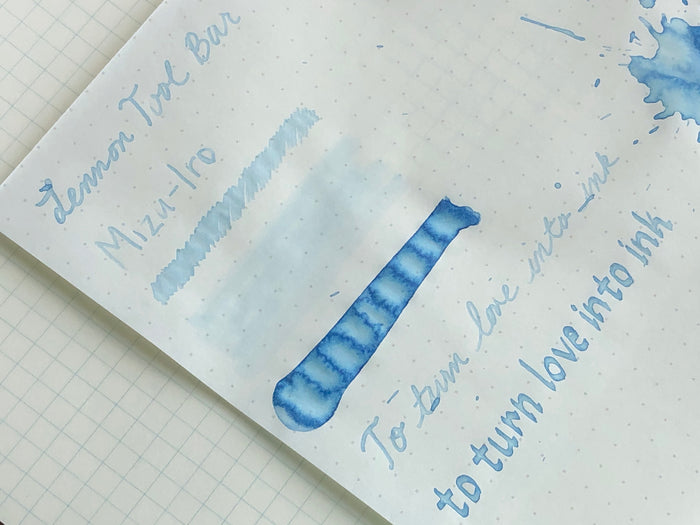 Lennon Tool Bar
Mizu-Iro
To turn love into ink
to turn love into ink